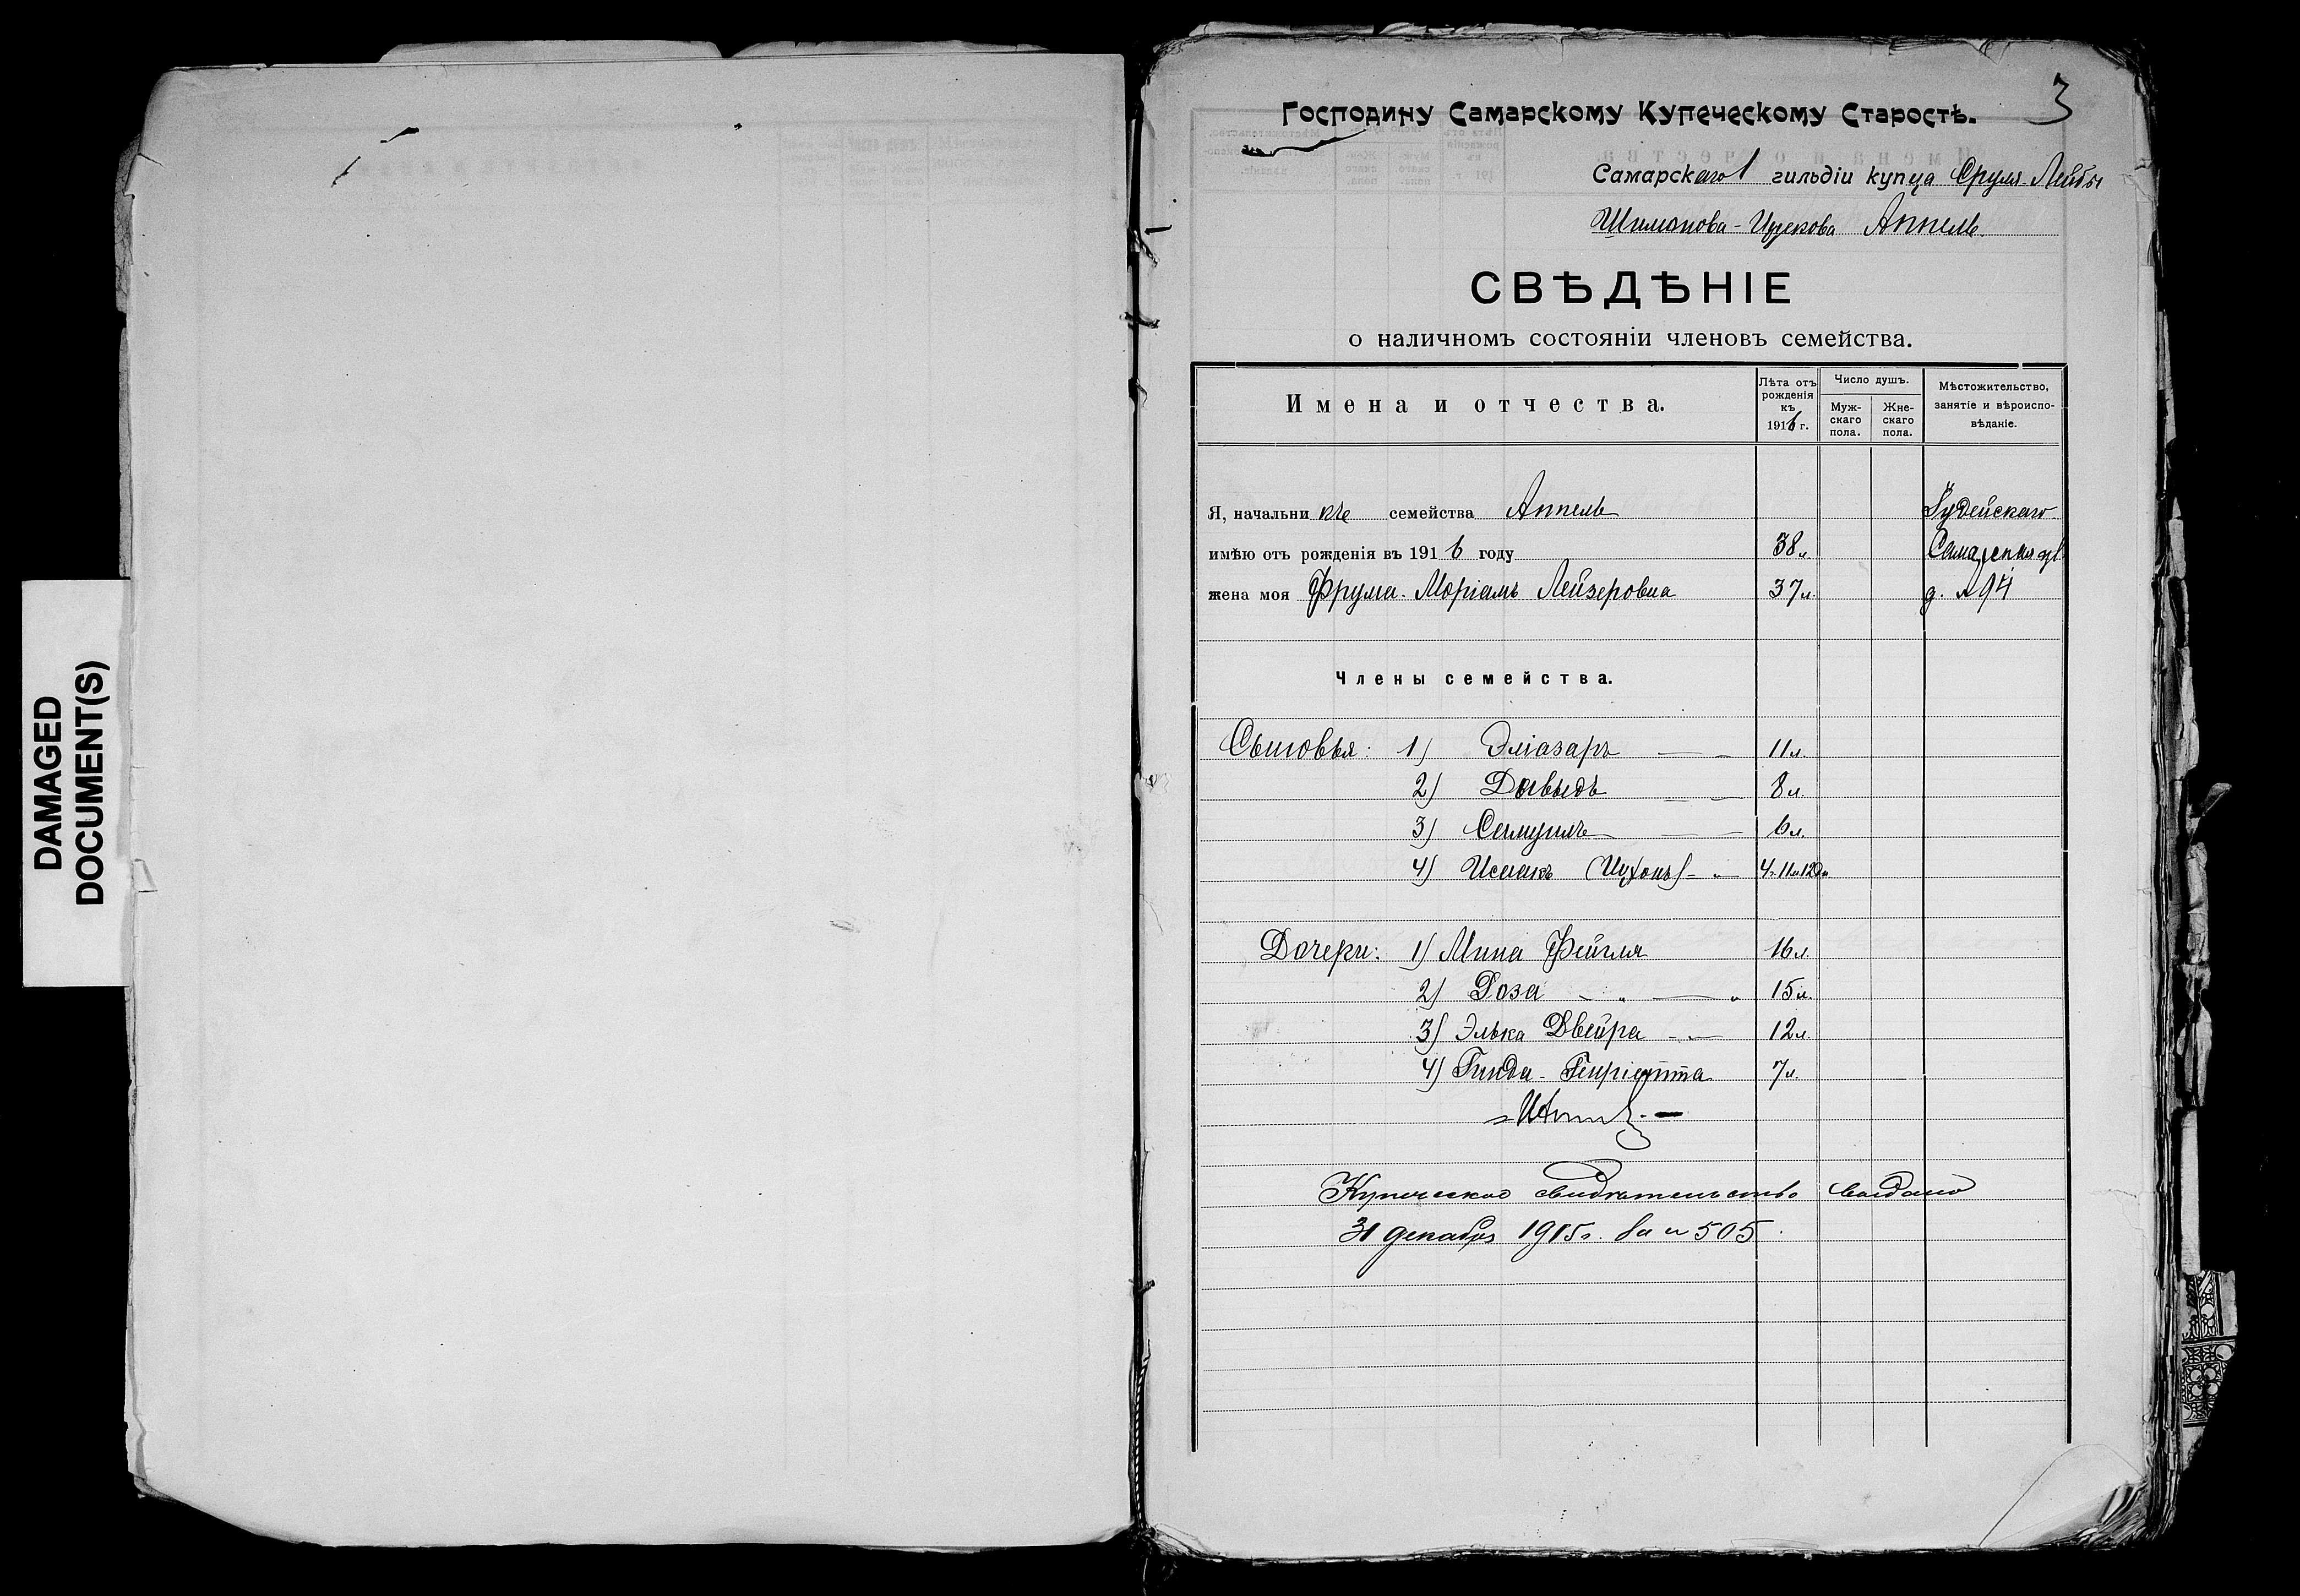 DAMAGED
DOCUMENT(S)
3
Господину Самарскому Купеческому Старостѣ.
Самарскаго 1 гильдіи купца Сруля-Лейбы
Шимонова-Ицекова Аппель.
СВѢДѢНІЕ
о наличномъ состояніи членовъ семейства.
Имена и отчества.
Лѣта отъ рожденія къ 1916 г.
Число душъ.
Муж-скаго пола.
Жне-скаго пола.
Мѣстожительство, занятіе и вѣроиспо-вѣданіе.
Я, начальникъ семейства Аппель Іудейскаго
имѣю отъ рожденія въ 1916 году 38 л. Самарская ул.
жена моя Фрума-Моріамъ Лейзеровна 37 л. д. № 94
Члены семейства.
Сыновья: 1) Эліазаръ 11 л.
2) Давыдъ 8 л.
3) Самуилъ 6 л.
4) Исаакъ 4 г. 11 м 12 дн
Дочери: 1) Мина Фейгля 16 л.
2) Роза 15 л.
3) Элька Двейра 12 л.
4) Гинда-Генріетта 7 л.
Купеческое свидѣтельство выдано
31 декабря 1915 г. за № 505.